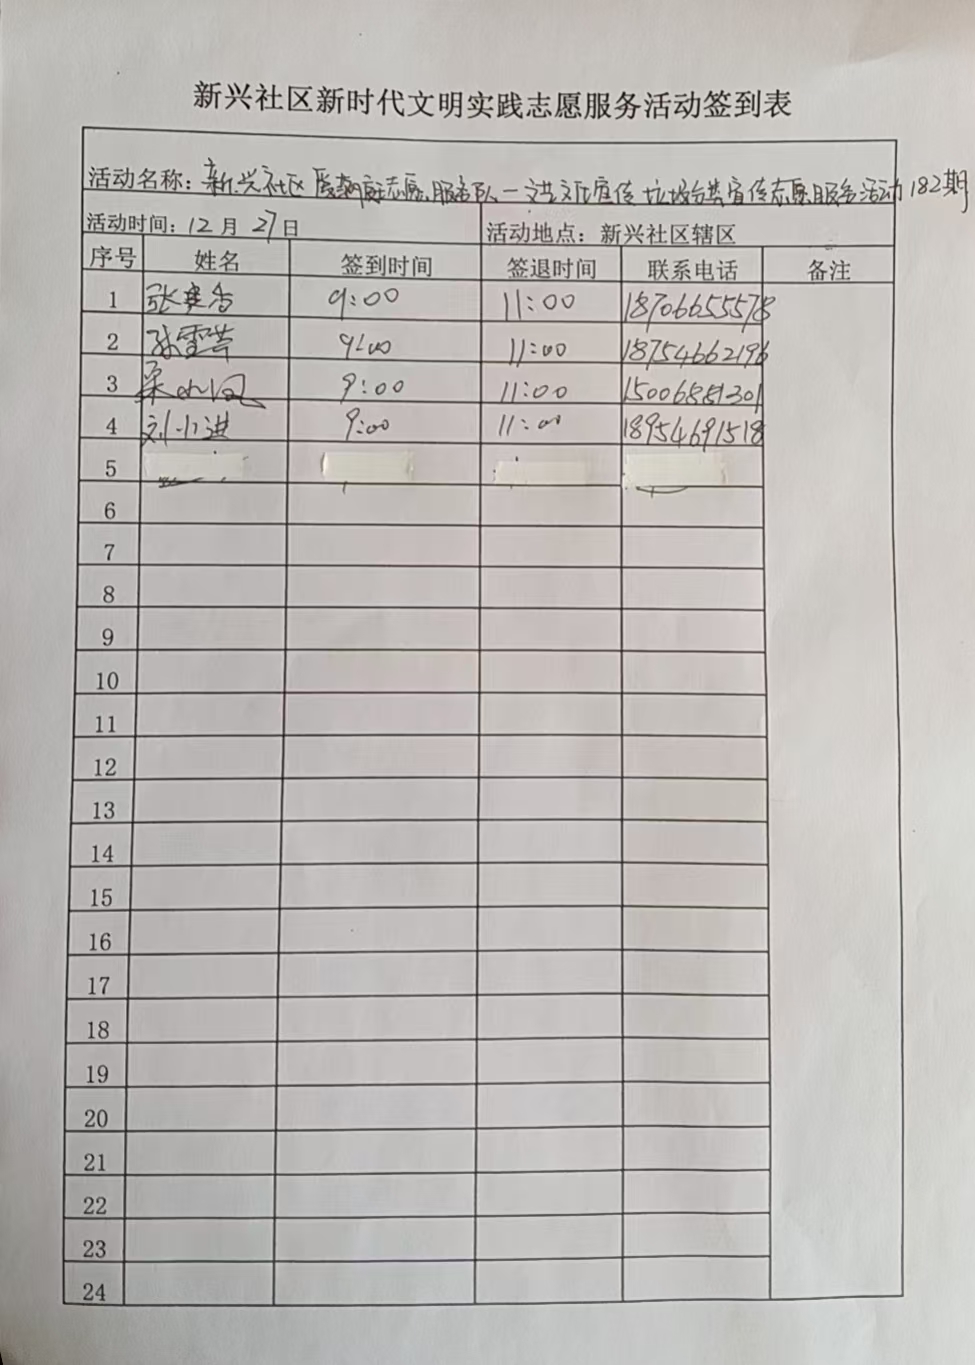 新兴社区新时代文明实践志愿服务活动签到表
活动名称：新兴社区 志愿服务队一 文化宣传 垃圾分类宣传志愿服务活动182期
活动时间：12月27日 活动地点：新兴社区辖区
序号 姓名 签到时间 签退时间 联系电话 备注
1 张 香 9:00 11:00 18706655578
2 孙雪芸 9:00 11:00 18754662196
3 9:00 11:00 15006881301
4 刘小洪 9:00 11:00 18954691518
5
6
7
8
9
10
11
12
13
14
15
16
17
18
19
20
21
22
23
24